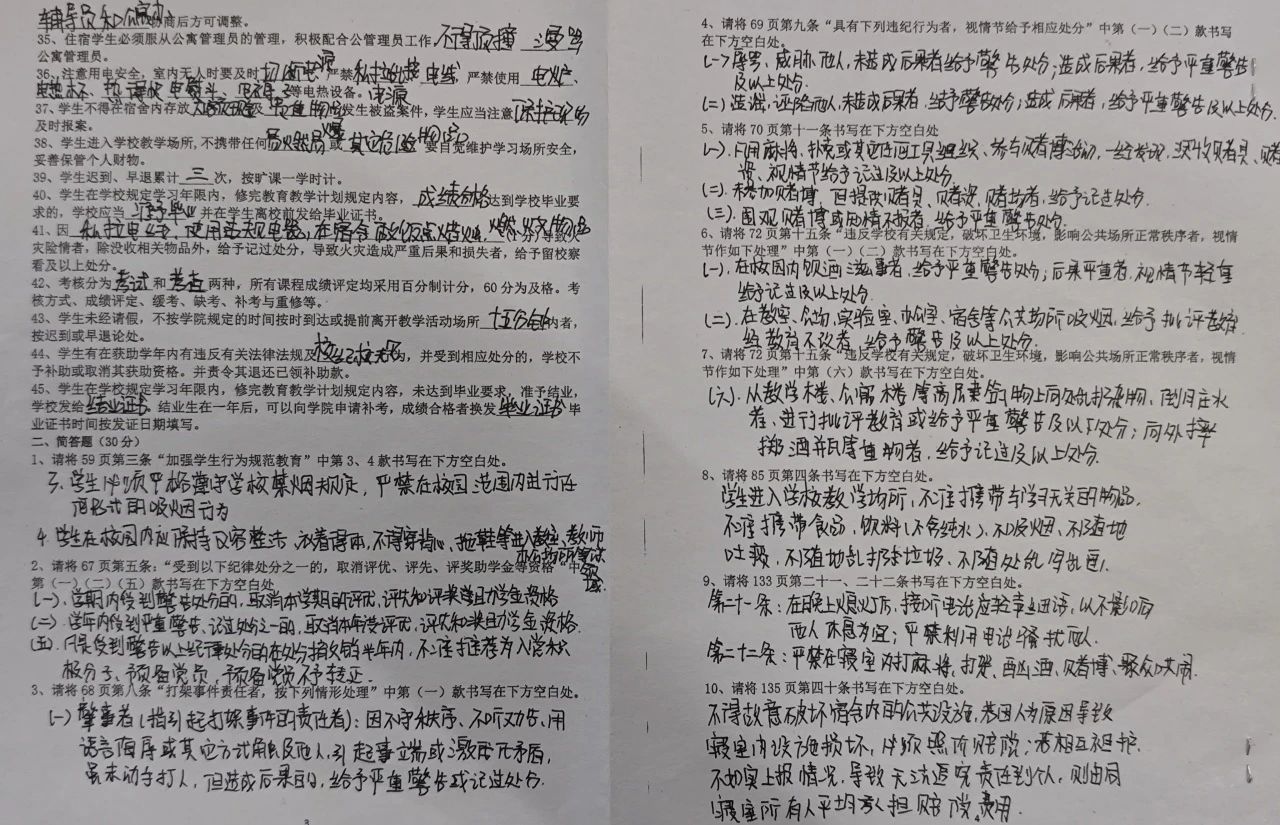 辅导员和公寓办协商后方可调整。
35、住宿学生必须服从公寓管理员的管理，积极配合公管理员工作，不得顶撞 谩骂
公寓管理员。
36、注意用电安全，室内无人时要及时切断电源，严禁私拉乱接电线 严禁使用 电炉、
电热杯、热得快 电熨斗、等电热设备。
37、学生不得在宿舍内存放大额现金及贵重物品发生被盗案件，学生应当注意保护现场
及时报案。
38、学生进入学校教学场所，不携带任何易燃易爆或其它危险物品，要自觉维护学习场所安全，
妥善保管个人财物。
39、学生迟到、早退累计 三 次，按旷课一学时计。
40、学生在学校规定学习年限内，修完教育教学计划规定内容，成绩合格达到学校毕业要
求的，学校应当 准予毕业 并在学生离校前发给毕业证书。
41、因 私拉电线、使用违规电器、在宿舍 点蜡烛，燃烧物品 导致火
灾险情者，除没收相关物品外，给予记过处分，导致火灾造成严重后果和损失者，给予留校察
看及以上处分。
42、考核分为考试和考查两种，所有课程成绩评定均采用百分制计分，60 分为及格。考
核方式、成绩评定、缓考、缺考、补考与重修等。
43、学生未经请假，不按学院规定的时间按时到达或提前离开教学活动场所 十五分钟内者，
按迟到或早退论处。
44、学生有在获助学年内有违反有关法律法规及校纪校规为，并受到相应处分的，学校不
予补助或取消其获助资格。并责令其退还已领补助款。
45、学生在学校规定学习年限内，修完教育教学计划规定内容，未达到毕业要求，准予结业，
学校发给结业证书。结业生在一年后，可以向学院申请补考，成绩合格者换发毕业证书 毕
业证书时间按发证日期填写。
二、简答题（30 分）
1、请将 59 页第三条“加强学生行为规范教育”中第 3、4 款书写在下方空白处。
3. 学生必须严格遵守学校禁烟规定，严禁在校园范围内进行任
何形式的吸烟行为
4. 学生在校园内应保持仪容整洁，衣着得体，不得穿背心、拖鞋等进入教室、教师
办公场所等
2、请将 67 页第五条：“受到以下纪律处分之一的，取消评优、评先、评奖助学金等资格”中
第（一）（二）（五）款书写在下方空白处
（一）. 学期内受到警告处分的，取消本学期的评优，评先和评奖学助学金资格
（二）. 学年内受到严重警告、记过处分之一的，取消本年度评优，评先和奖助学金资格.
（五）. 凡是受到警告以上纪律处分的在处分撤销半年内，不准推荐为入党积
极分子、预备党员，预备党员不予转正.
3、请将 68 页第八条“打架事件责任者，按下列情形处理”中第（一）款书写在下方空白处。
（一）肇事者（指引起打架事件的责任者）：因不守秩序、不听劝告、用
语言侮辱或其它方式触及他人，引起事端或激化矛盾，
虽未动手打人，但造成后果的，给予严重警告或记过处分.
3
4、请将 69 页第九条“具有下列违纪行为者，视情节给予相应处分”中第（一）（二）款书写
在下方空白处。
（一）辱骂、威胁他人，未造成后果者给予警告处分；造成后果者，给予严重警告
及以上处分.
（二）造谣，诬陷他人，未造成后果者，给予警告处分；造成后果者，给予严重警告及以上处分.
5、请将 70 页第十一条书写在下方空白处
（一）. 凡用麻将、扑克或其它任何工具组织、参与赌博活动，一经发现，没收赌具、赌
资、视情节给予记过及以上处分
（二）. 未参加赌博，但提供赌具、赌资、赌场者，给予记过处分.
（三）. 围观赌博或知情不报者，给予严重警告处分.
6、请将 72 页第十五条“违反学校有关规定，破坏卫生环境，影响公共场所正常秩序者，视情
节作如下处理”中第（一）（二）款书写在下方空白处。
（一）. 在校园内饮酒滋事者，给予严重警告处分；后果严重者，视情节轻重
给予记过及以上处分.
（二）. 在教室、会场、实验室、办公室、宿舍等公共场所吸烟，给予批评教育，
经教育不改者，给予警告及以上处分.
7、请将 72 页第十五条“违反学校有关规定，破坏卫生环境，影响公共场所正常秩序者，视情
节作如下处理”中第（六）款书写在下方空白处。
（六）. 从教学楼、公寓楼等高层建筑物上向外乱扔杂物，倒污水
者，进行批评教育或给予严重警告及以下处分；向外摔
掷酒瓶等重物者，给予记过及以上处分.
8、请将 85 页第四条书写在下方空白处。
学生进入学校教学场所，不准携带与学习无关的物品，
不准携带食品，饮料（不含纯水），不吸烟、不随地
吐痰，不随地乱扔垃圾、不随处乱写乱画.
9、请将 133 页第二十一、二十二条书写在下方空白处。
第二十一条：在晚上熄灯后，接听电话应轻声通话，以不影响
他人休息为宜；严禁利用电话骚扰他人.
第二十二条：严禁在寝室内打麻将，打架、酗酒、赌博、聚众哄闹.
10、请将 135 页第四十条书写在下方空白处。
不得故意破坏宿舍内的公共设施，若因人为原因导致
寝室内设施损坏，必须照价赔偿；若相互袒护，
不如实上报情况，导致无法追究责任到个人，则由同
寝室所有人平均承担赔偿费用